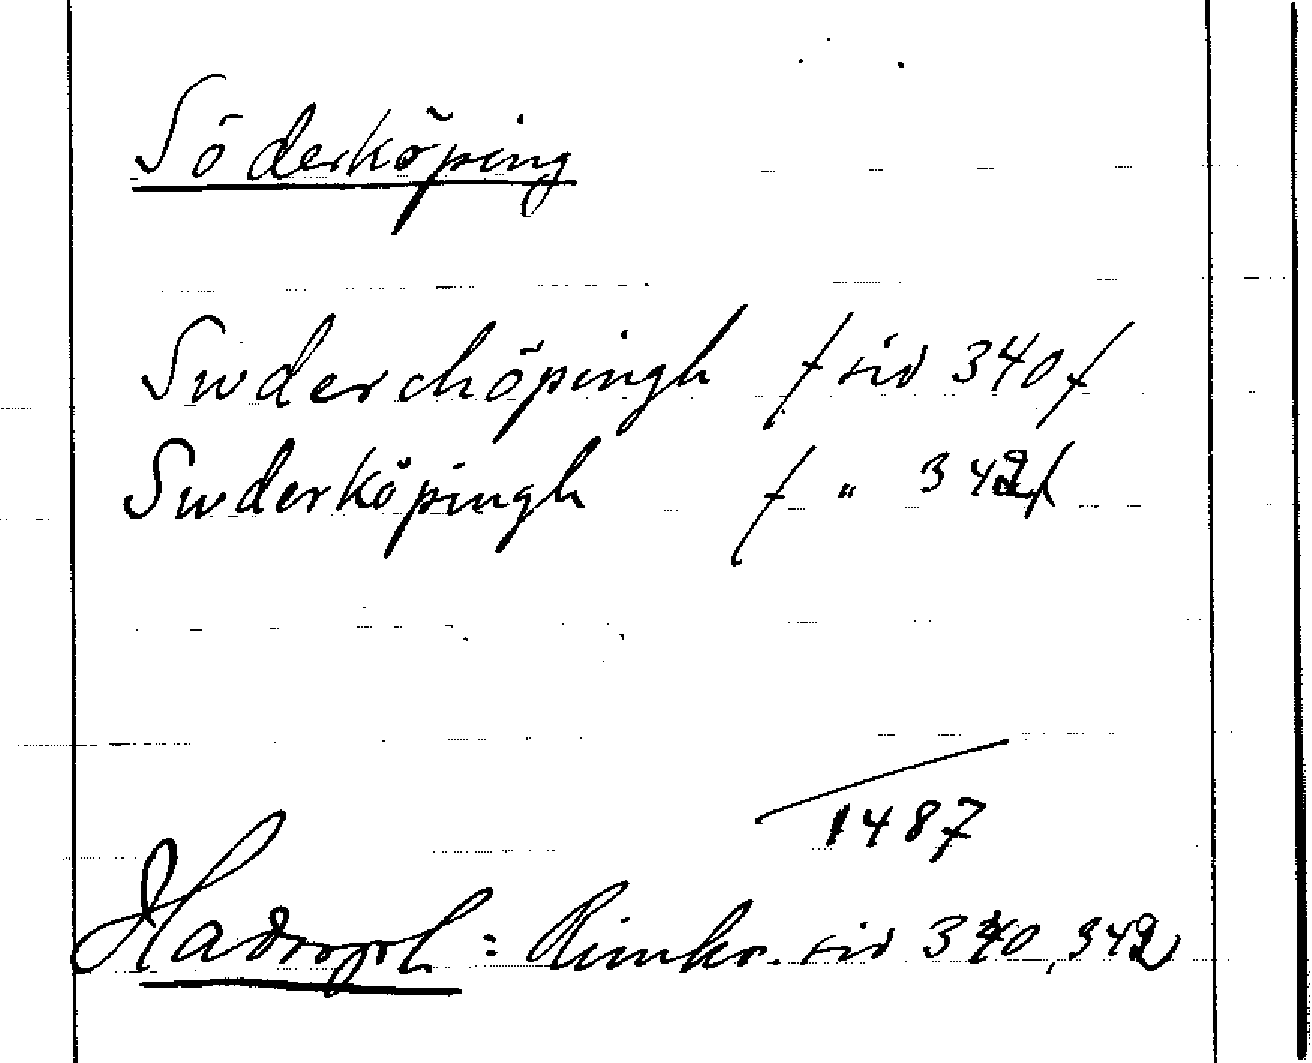 Söderköping
Swderchöpingh / sid 340 /
Swderköpingh / " 342 /
1487
Hadorph: Rimkr. sid 340, 342